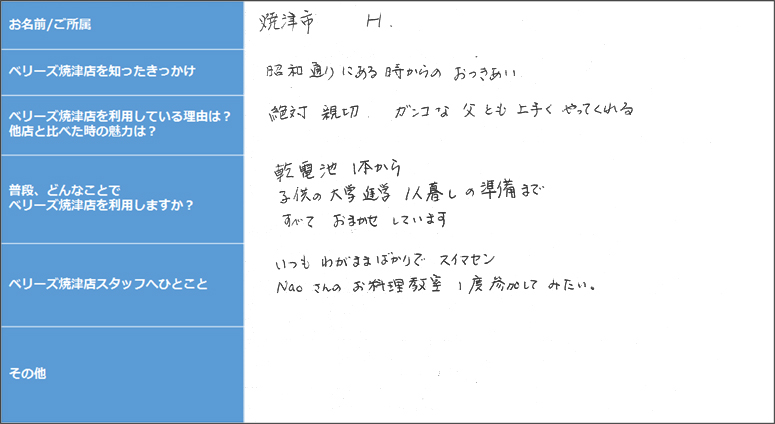 お名前/ご所属
焼津市 H.
ベリーズ焼津店を知ったきっかけ
昭和通りにある時からの おつきあい
ベリーズ焼津店を利用している理由は？
他店と比べた時の魅力は？
絶対 親切. ガンコな 父とも 上手く やってくれる
普段、どんなことで
ベリーズ焼津店を利用しますか？
乾電池 1本から
子供の大学進学 1人暮しの準備まで
すべて おまかせ しています
ベリーズ焼津店スタッフへひとこと
いつも わがままばかりで スイマセン
Naoさんの お料理教室 1度参加して みたい。
その他